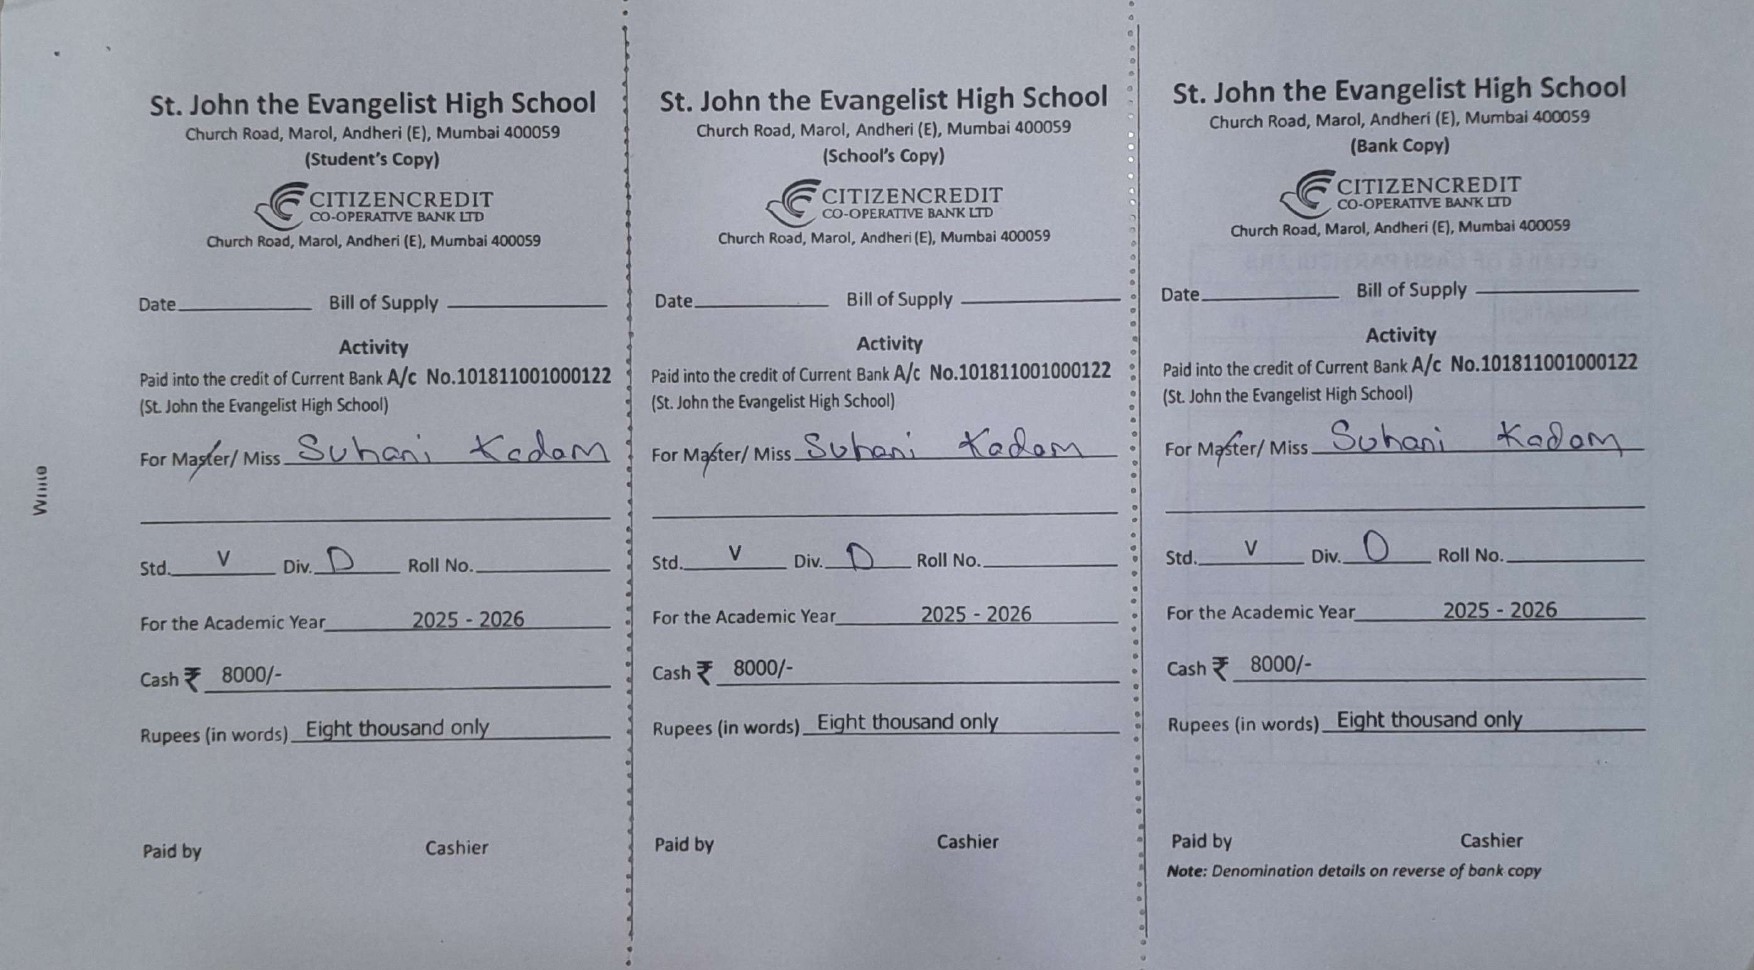 St. John the Evangelist High School
Church Road, Marol, Andheri (E), Mumbai 400059
(Student's Copy)
CITIZENCREDIT
CO-OPERATIVE BANK LTD
Church Road, Marol, Andheri (E), Mumbai 400059
Date Bill of Supply
Activity
Paid into the credit of Current Bank A/c No.101811001000122
(St. John the Evangelist High School)
For Master/ Miss Suhani Kadam
Std. V Div. D Roll No.
For the Academic Year 2025 - 2026
Cash ₹ 8000/-
Rupees (in words) Eight thousand only
Paid by Cashier
St. John the Evangelist High School
Church Road, Marol, Andheri (E), Mumbai 400059
(School's Copy)
CITIZENCREDIT
CO-OPERATIVE BANK LTD
Church Road, Marol, Andheri (E), Mumbai 400059
Date Bill of Supply
Activity
Paid into the credit of Current Bank A/c No.101811001000122
(St. John the Evangelist High School)
For Master/ Miss Suhani Kadam
Std. V Div. D Roll No.
For the Academic Year 2025 - 2026
Cash ₹ 8000/-
Rupees (in words) Eight thousand only
Paid by Cashier
St. John the Evangelist High School
Church Road, Marol, Andheri (E), Mumbai 400059
(Bank Copy)
CITIZENCREDIT
CO-OPERATIVE BANK LTD
Church Road, Marol, Andheri (E), Mumbai 400059
Date Bill of Supply
Activity
Paid into the credit of Current Bank A/c No.101811001000122
(St. John the Evangelist High School)
For Master/ Miss Suhani Kadam
Std. V Div. D Roll No.
For the Academic Year 2025 - 2026
Cash ₹ 8000/-
Rupees (in words) Eight thousand only
Paid by Cashier
Note: Denomination details on reverse of bank copy